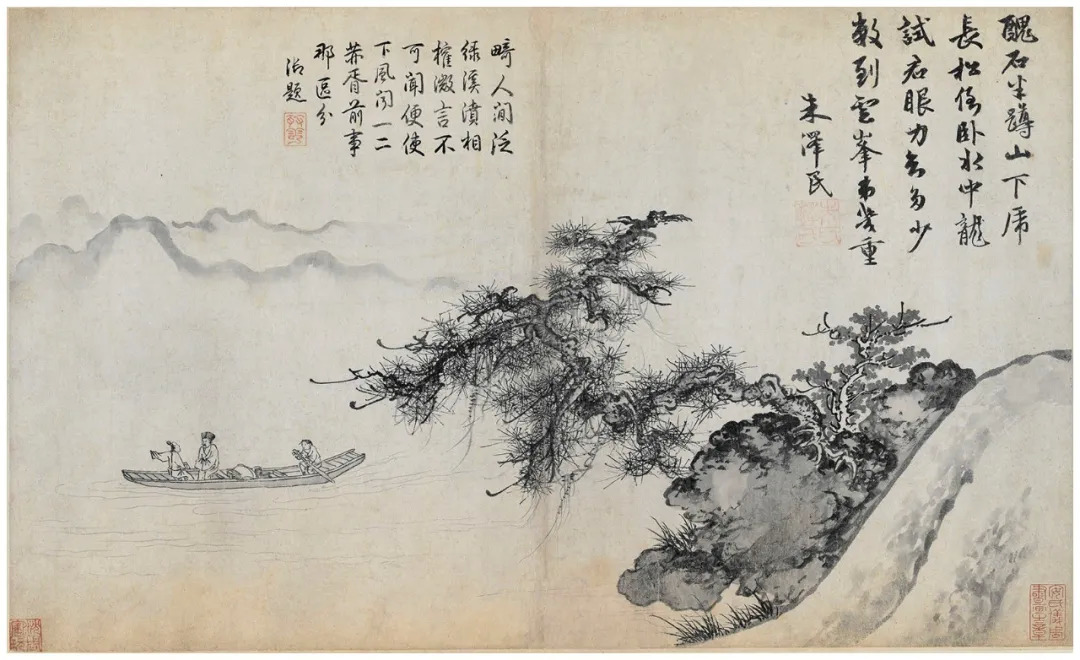 醜石半蹲山下虎
長松倒臥水中龍
試君眼力知多少
數到雲峯第幾重
朱澤民
畸人閒泛
緑溪濆相
榷微言不
可聞便使
下風聞一二
華胥前事
那區分
治題